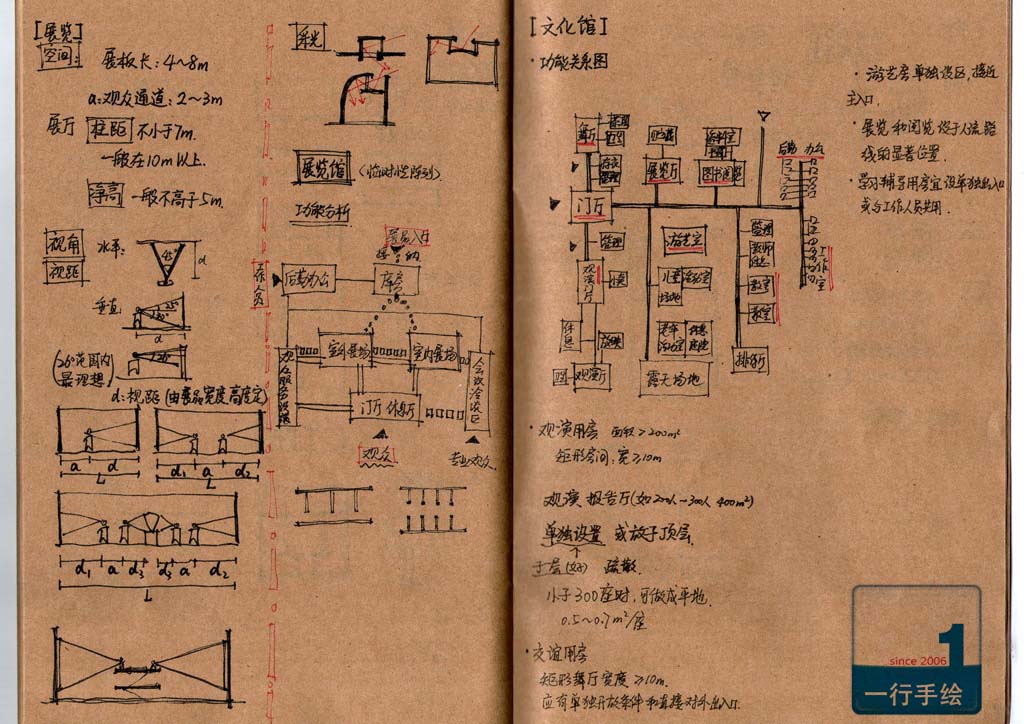 [展览]
空间:
展板长: 4~8m
a: 观众通道: 2~3m
展厅 柱距 不小于7m.
一般在10m以上.
净高 一般不高于5m.
视角
视距
水平:
45°
d
垂直
d
26°
(26°范围内
最理想)
d: 视距 (由展品宽度高度定)
a d
L
d1 a d2
L
d1 a d3 d3 a d2
L
采光
展览馆 (临时性陈列)
功能分析
展品入口
工作人员
后勤办公
库房
室外展场
室内展场
门厅 休息厅
会议洽谈区
观众
专业观众
[文化馆]
·功能关系图
·游艺房单独设区, 接近
主入口.
·展览和阅览设于人流路
线的显著位置.
·学习辅导用房宜设单独出入口
或与工作人员共用.
舞厅
展览厅
图书阅览
后勤 办公
门厅
管理
游艺室
管理
观演门厅
儿童
活动室
场地
教室
教室
工作室
休息
放映
老年
活动室
观演厅
露天场地
排练厅
·观演用房 面积≥200m²
矩形房间: 宽≥10m
观演 报告厅(如200人-300人 400m²)
单独设置 或放于顶层.
疏散.
小于300座时, 可做成平地.
0.5~0.7m²/座
·交谊用房
矩形舞厅宽度≥10m.
应有单独开放条件和直接对外出入口.
since 2006
1
一行手绘